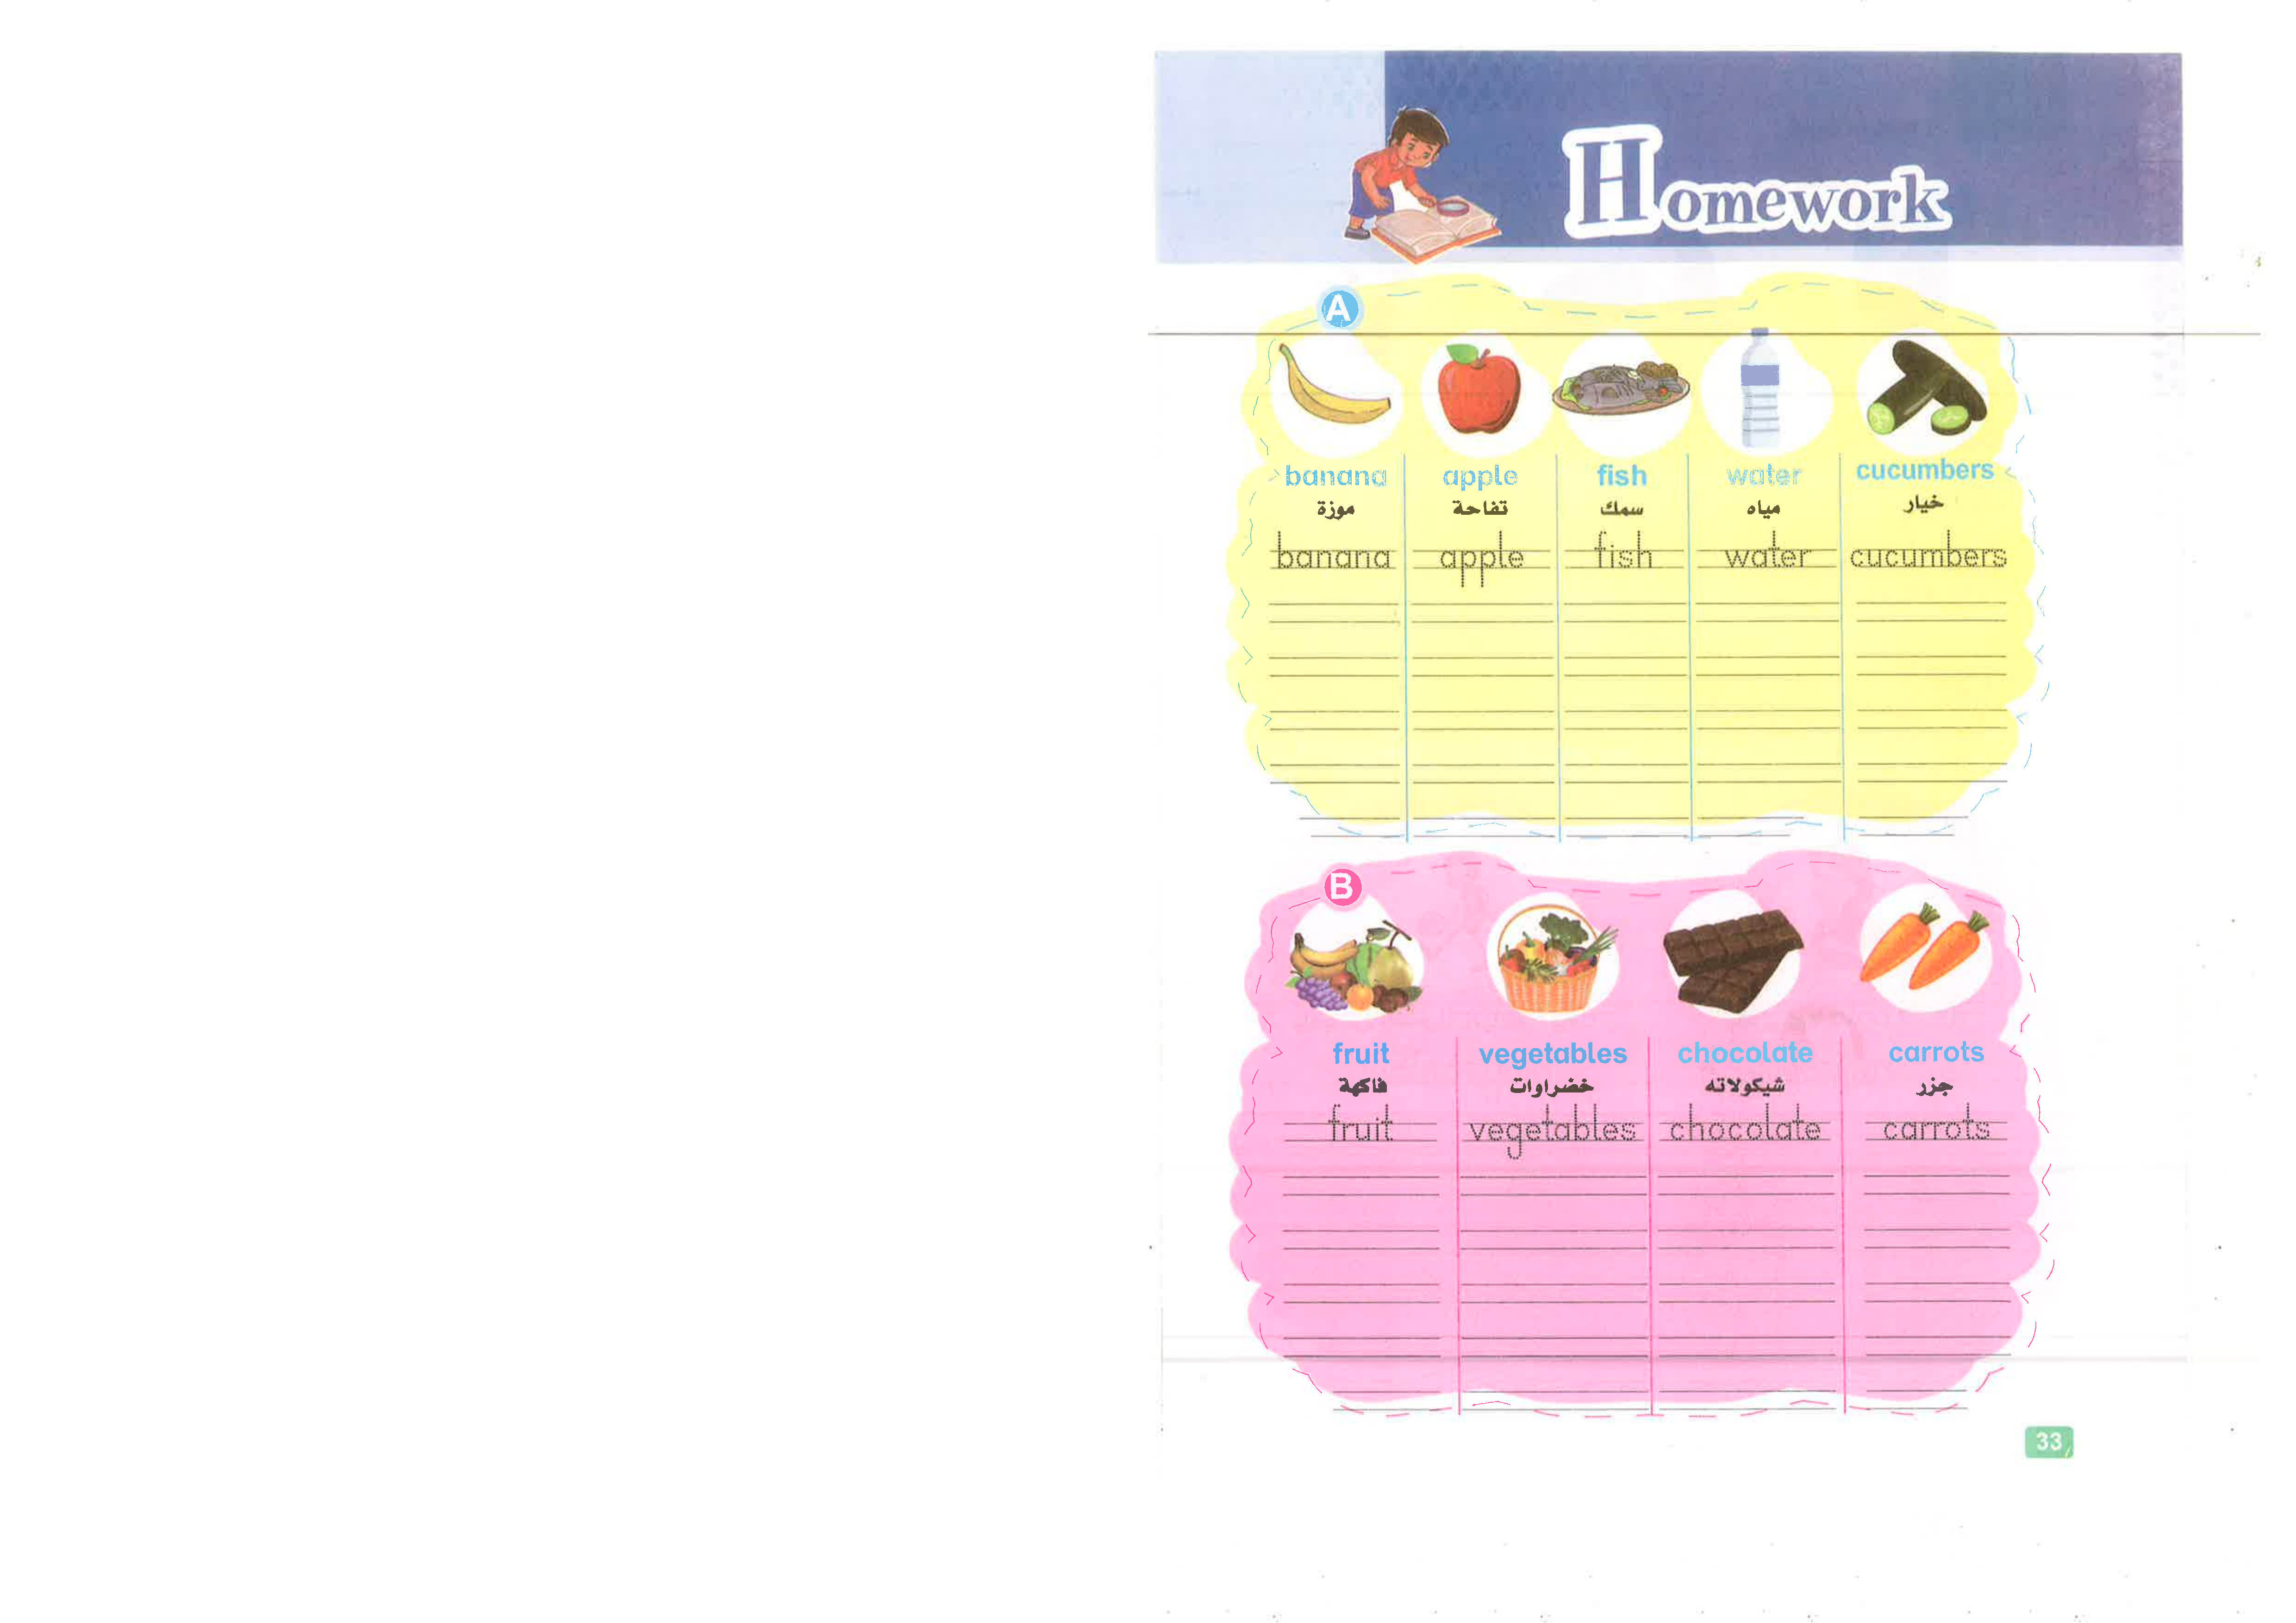 Homework
A
banana apple fish water cucumbers
موزة تفاحة سمك مياه خيار
banana apple fish water cucumbers
B
fruit vegetables chocolate carrots
فاكهة خضراوات شيكولاته جزر
fruit vegetables chocolate carrots
33